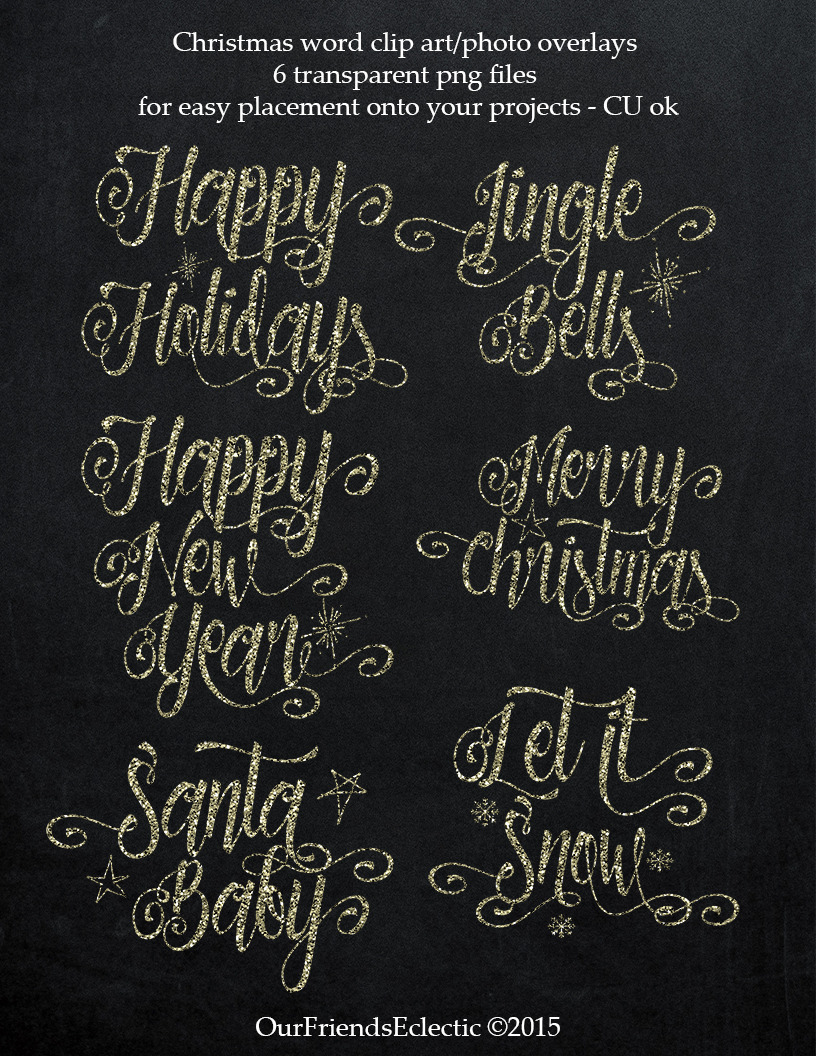 Christmas word clip art/photo overlays
6 transparent png files
for easy placement onto your projects - CU ok
Happy
Holidays
Jingle
Bells
Happy
New
Year
Merry
Christmas
Santa
Baby
Let it
Snow
OurFriendsEclectic ©2015